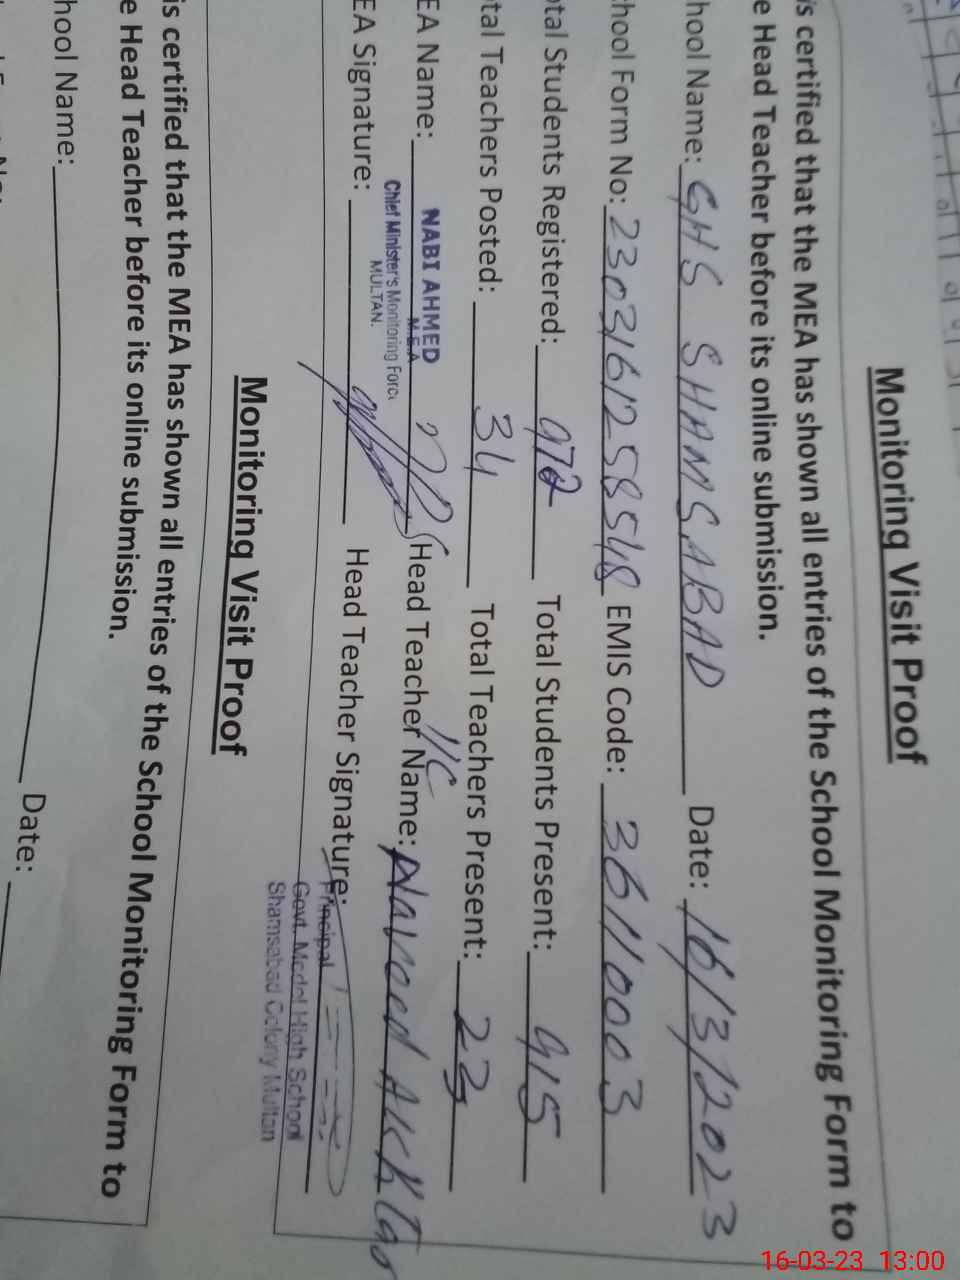 Monitoring Visit Proof
is certified that the MEA has shown all entries of the School Monitoring Form to
e Head Teacher before its online submission.
hool Name: GHS SHAMSABAD Date: 16/3/2023
hool Form No: 2303161258548 EMIS Code: 36110003
otal Students Registered: 972 Total Students Present: 915
otal Teachers Posted: 34 Total Teachers Present: 23
EA Name: NABI AHMED Head Teacher Name: I/C Naveed Akhtar
M.E.A
Chief Minister's Monitoring Force
MULTAN.
EA Signature: Head Teacher Signature:
Principal
Govt. Model High School
Shamsabad Colony Multan
Monitoring Visit Proof
is certified that the MEA has shown all entries of the School Monitoring Form to
e Head Teacher before its online submission.
hool Name: Date:
16-03-23 13:00